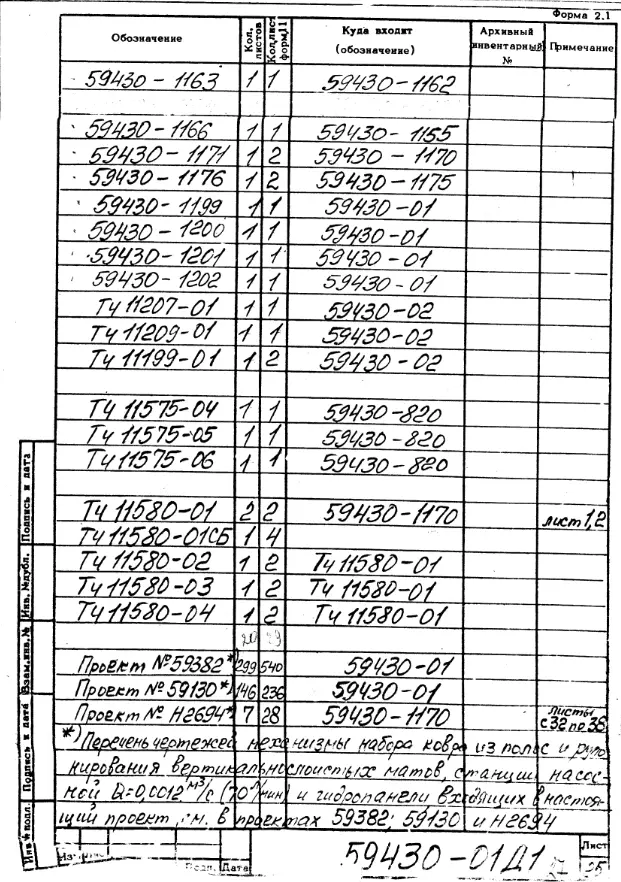 Форма 2.1
Обозначение Кол. листов Кол. лист. форм. 11 Куда входит (обозначение) Архивный инвентарный № Примечание
59430-1163 1 1 59430-1162
59430-1166 1 1 59430-1155
59430-1171 1 2 59430-1170
59430-1176 1 2 59430-1175
59430-1199 1 1 59430-01
59430-1200 1 1 59430-01
59430-1201 1 1 59430-01
59430-1202 1 1 59430-01
Тч 11207-01 1 1 59430-02
Тч 11209-01 1 1 59430-02
Тч 11199-01 1 2 59430-02
Тч 11575-04 1 1 59430-820
Тч 11575-05 1 1 59430-820
Тч 11575-06 1 1 59430-820
Тч 11580-01 2 2 59430-1170 лист 1,2
Тч 11580-01СБ 1 4
Тч 11580-02 1 2 Тч 11580-01
Тч 11580-03 1 2 Тч 11580-01
Тч 11580-04 1 2 Тч 11580-01
Проект №59382*) 299 540 59430-01
Проект №59130*) 146 236 59430-01
Проект № Н2694*) 7 28 59430-1170 листы с 32 по 38
*) Перечень чертежей механизмы набора ковра из полос и руло
нирования вертикальнослоистых матов, станции насос-
ной Q=0,0012 м³/с (70 л/мин) и гидропанели входящих в настоя-
щий проект см. в проектах 59382; 59130 и Н2694
Подпись и дата
Инв. № дубл.
Взам. инв. №
Подпись и дата
Инв № подл.
Дата
59430-01Д1
Лист
25